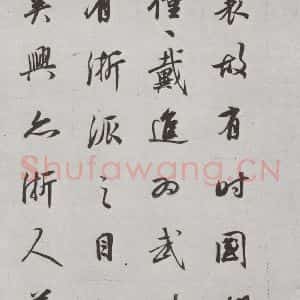 衰故有时國
僅〻戴進为武
有浙派之目
吴興亦浙人
Shufawang.CN